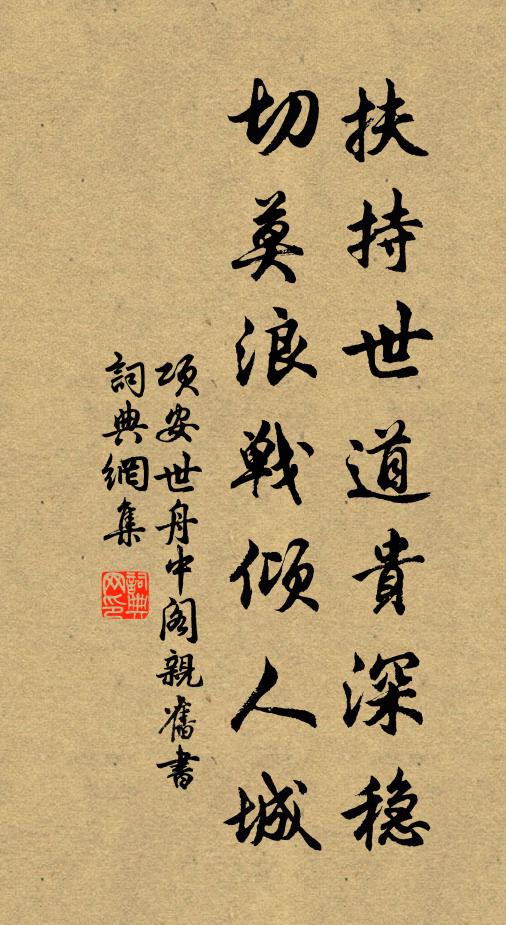 扶持世道貴深穏
切莫浪戰傾人城
項安世舟中閣親舊書
詞典網集
詞典网印